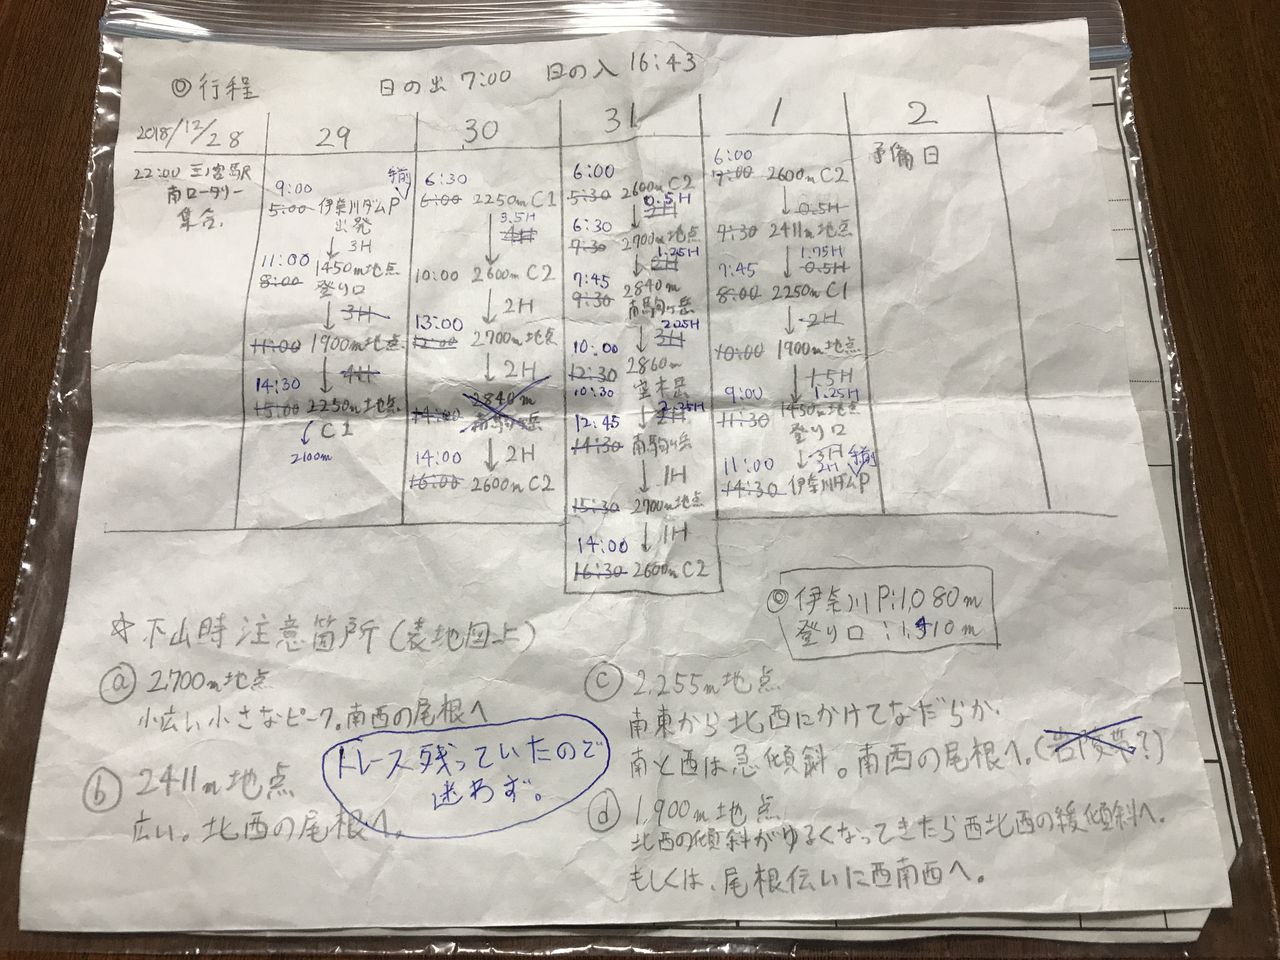 ◎行程 日の出 7:00 日の入 16:43
2018/12/28
22:00 三ノ宮駅
南ロータリー
集合.
29
手前
9:00
5:00 伊奈川ダムP
出発
↓3H
11:00
8:00 1450m地点
登り口
↓3H
11:00 1900m地点
↓4H
14:30
15:00 2250m地点
C1
2100m
30
6:30
6:00 2250m C1
3.5H
↓4H
10:00 2600m C2
↓2H
13:00
12:00 2700m地点
↓2H
2840m
14:00 南駒ヶ岳
14:00 ↓2H
16:00 2600m C2
31
6:00
5:30 2600m C2
0.5H
↓2H
6:30
7:30 2700m地点
1.25H
↓2H
7:45
9:30 2840m
南駒ヶ岳
2.25H
↓3H
10:00
12:30 2860m
10:30 空木岳
2.25H
↓2H
12:45
14:30 南駒ヶ岳
↓1H
15:30 2700m地点
↓1H
14:00
16:30 2600m C2
1
6:00
7:00 2600m C2
↓0.5H
7:30 2411m地点
1.75H
7:45 ↓0.5H
8:00 2250m C1
↓2H
10:00 1900m地点
↓1.5H
9:00 1.25H
11:30 1450m地点
登り口
↓3H
11:00 2H 手前
14:30 伊奈川ダムP
2
予備日
◎伊奈川P:1,080m
登り口:1,410m
☆下山時注意箇所(裏地図上)
ⓐ 2,700m地点
小広い小さなピーク。南西の尾根へ
ⓑ 2411m地点
広い。北西の尾根へ。
トレース残っていたので
迷わず。
ⓒ 2,255m地点
南東から北西にかけてなだらか.
南と西は急傾斜。南西の尾根へ。
ⓓ 1,900m地点
北西の傾斜がゆるくなってきたら西北西の緩傾斜へ.
もしくは、尾根伝いに西南西へ。